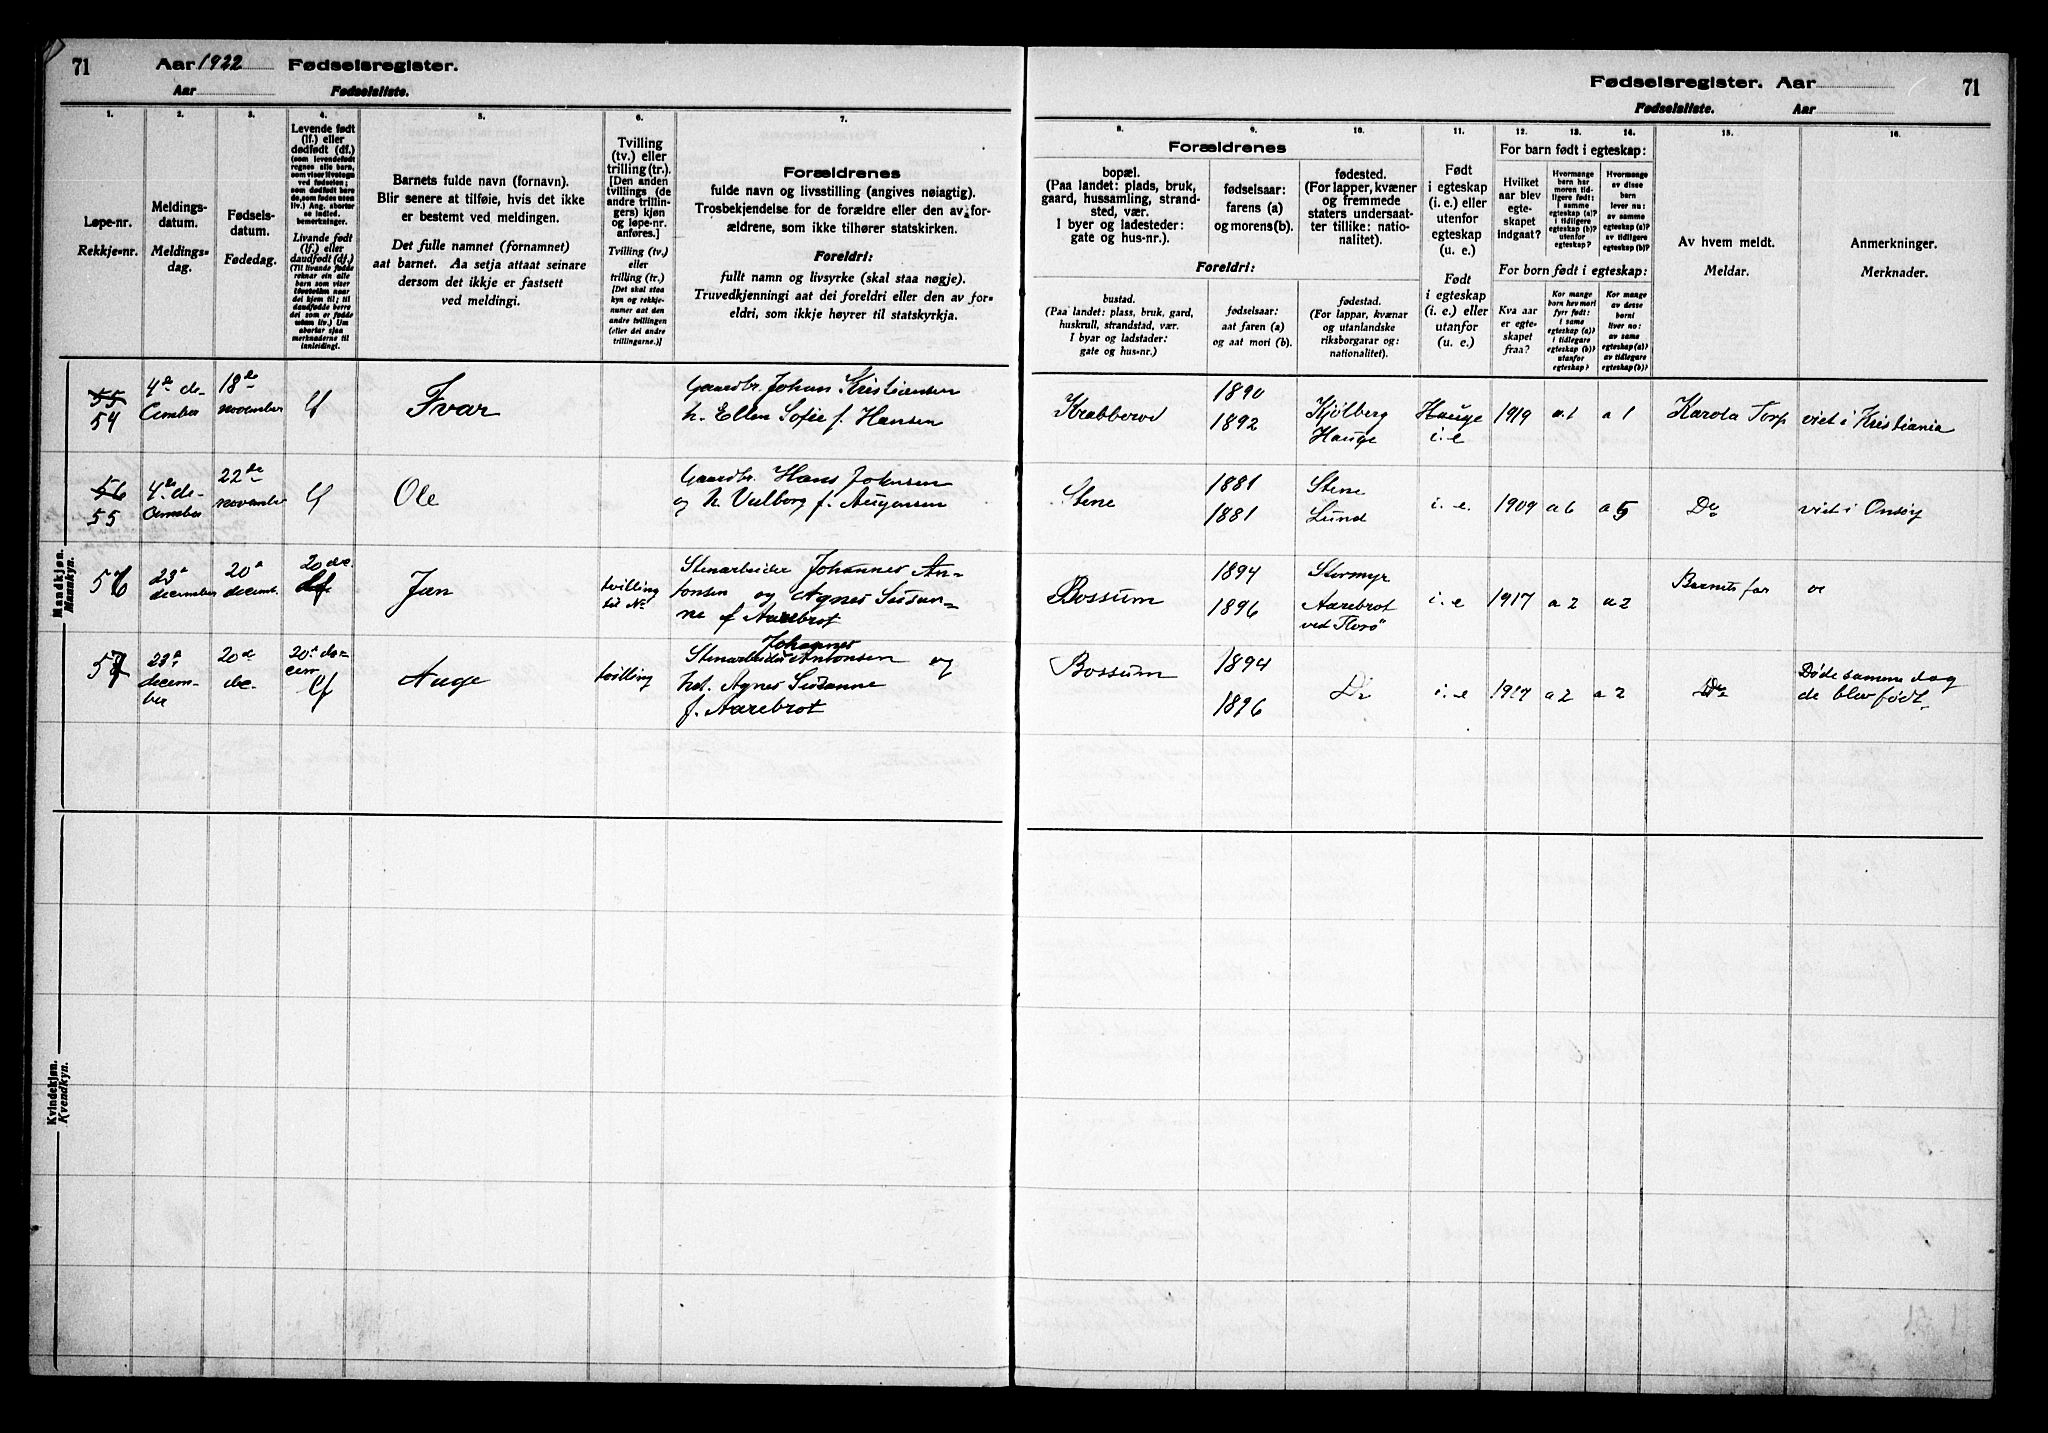 71
Aar 1922 Fødselsregister.
Aar Fødselsliste.
1.
Løpe-nr.
Rekkje-nr.
2.
Meldings-
datum.
Meldings-
dag.
3.
Fødsels-
datum.
Fødedag.
4.
Levende født
(lf.) eller
dødfødt (df.)
Livande født
(lf.) eller
daudfødt (df.)
5.
Barnets fulde navn (fornavn).
Blir senere at tilføie, hvis det ikke
er bestemt ved meldingen.
Det fulle namnet (fornamnet)
aat barnet. Aa setja attaat seinare
dersom det ikkje er fastsett
ved meldingi.
6.
Tvilling
(tv.) eller
trilling (tr.)
[Den anden
tvillings (de
andre trillin-
gers) kjøn
og løpe-nr.
anføres.]
Tvilling (tv.)
eller
trilling (tr.)
[Det skal staa
kyn og rekkje-
numer aat den
andre tvillingen
(eller dei andre
trillingarne.)]
7.
Forældrenes
fulde navn og livsstilling (angives nøiagtig).
Trosbekjendelse for de forældre eller den av for-
ældrene, som ikke tilhører statskirken.
Foreldri:
fullt namn og livsyrke (skal staa nøgje).
Truvedkjenningi aat dei foreldri eller den av for-
eldri, som ikkje høyrer til statskyrkja.
Mandkjøn.
Mannkyn.
55
54
4de de-
cember
18de
november
lf
Ivar
Gaardbr. Johan Kristiansen
h. Ellen Sofie f. Hansen
56
55
4de de-
cember
22de
november
lf
Ole
Gaardbr. Hans Johnsen
og h. Valborg f.
56
23de
december
20de
decemb.
20 de.
lf
Jan
tvilling
Stenarbeider Johannes An-
tonsen og Agnes Susan-
ne f Aarebrot
57
23de
decem-
ber
20de
de.
20de de-
cem
lf
Aage
tvilling
Johannes
Stenarbeider Antonsen og
h. Agnes Susanne
f. Aarebrot
Kvindekjøn.
Kvendkyn.
Fødselsregister. Aar 71
Fødselsliste. Aar
8.
9.
10.
Forældrenes
bopæl.
(Paa landet: plads, bruk,
gaard, hussamling, strand-
sted, vær.
I byer og ladesteder:
gate og hus-nr.).
fødselsaar:
farens (a)
og morens(b).
fødested.
(For lapper, kvæner
og fremmede
staters undersaat-
ter tillike: natio-
nalitet).
Foreldri:
bustad.
(Paa landet: plass, bruk, gard,
huskrull, strandstad, vær.
I byar og ladstader:
gate og hus-nr.)
fødselsaar:
aat faren (a)
og aat mori (b).
fødestad.
(For lappar, kvænar
og utanlandske
riksborgarar og:
nationalitet).
11.
Født
i egteskap
(i. e.) eller
utenfor
egteskap
(u. e.)
Født
i egteskap
(i. e.) eller
utanfor
(u. e.)
12. 13. 14.
For barn født i egteskap:
Hvilket
aar blev
egte-
skapet
indgaat?
Hvormange
barn har
moren tid-
ligere født:
i samme
egteskap (a)?
i tidligere
egteskap (b)?
utenfor
egteskap?
Hvormange
av disse
barn
lever nu:
av samme
egteskap (a)?
av tidligere
egteskap (b)?
For born født i egteskap:
Kva aar
er egte-
skapet
fraa?
Kor mange
born hev mori
fyrr født:
i same
egteskap (a)?
i tidlegare
egteskap (b)?
utanfor
egteskap?
Kor mange
av desse
borni
liver no:
av same
egteskap (a)?
av tidlegare
egteskap (b)?
15.
Av hvem meldt.
Meldar.
16.
Anmerkninger.
Merknader.
Krabberød
1890
1892
Kjølberg
Hauge
Hauge
i. e
1919
a 1
a 1
Karola Torp
viet i Kristiania
Stene
1881
1881
Stene
Lund
i. e.
1909
a 6
a 5
Do
viet i Onsøy
Bossum
1894
1896
Stormyr
Aarebrot
ved Florø
i. e
1917
a 2
a 2
Barnets far
Bossum
1894
1896
Do
i. e
1917
a 2
a 2
Do
Døde samme dag
de blev født